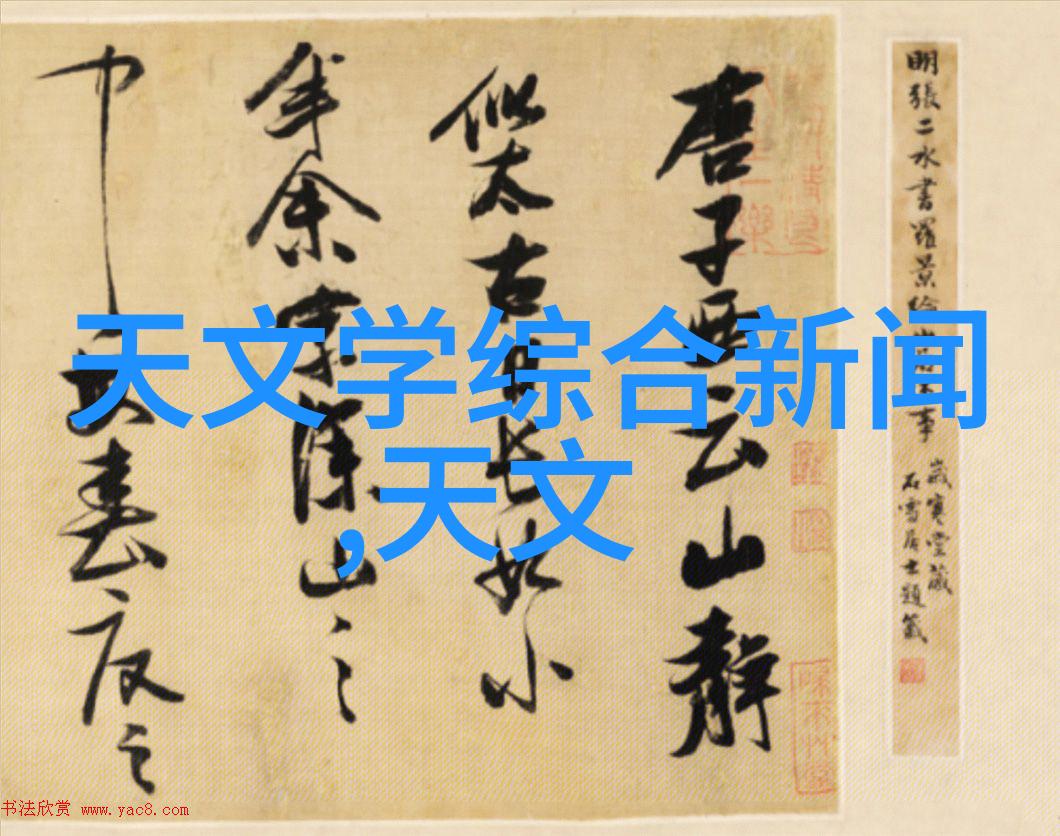 天文学综合新闻
,天文
明張二水書羅景綸山居事
歲寒堂藏
石雪居士題籤
唐子西云山靜
似太古日長如小
年余家深山之
中每春夏之
书法欣赏 www.yac8.com